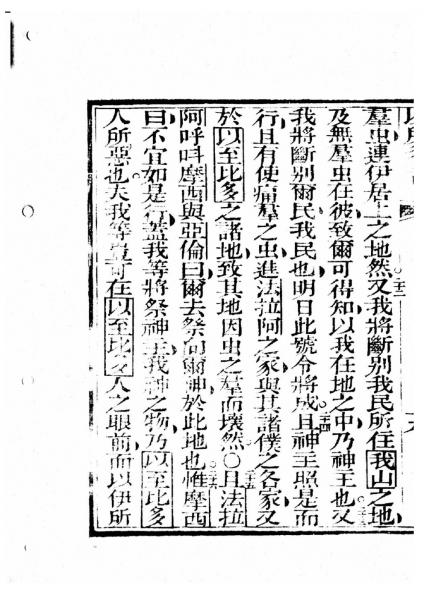 羣虫連伊居上之地然又我將斷別我民所在我山之地
及無羣虫在彼致爾可得知以我在地之中乃神主也又
我將斷別爾民我民也明日此號令將成且神主照是而
行且有使痛羣之虫進法拉阿之家與其諸僕之各家又
於以至比多之諸地致其地因虫之羣而壞然○且法拉
阿呼呌摩西與亞倫曰爾去祭向爾神於此地也惟摩西
曰不宜如是行蓋我等將祭神主我神之物乃以至比多
人所惡也夫我等豈可在以至比多人之眼前而以伊所